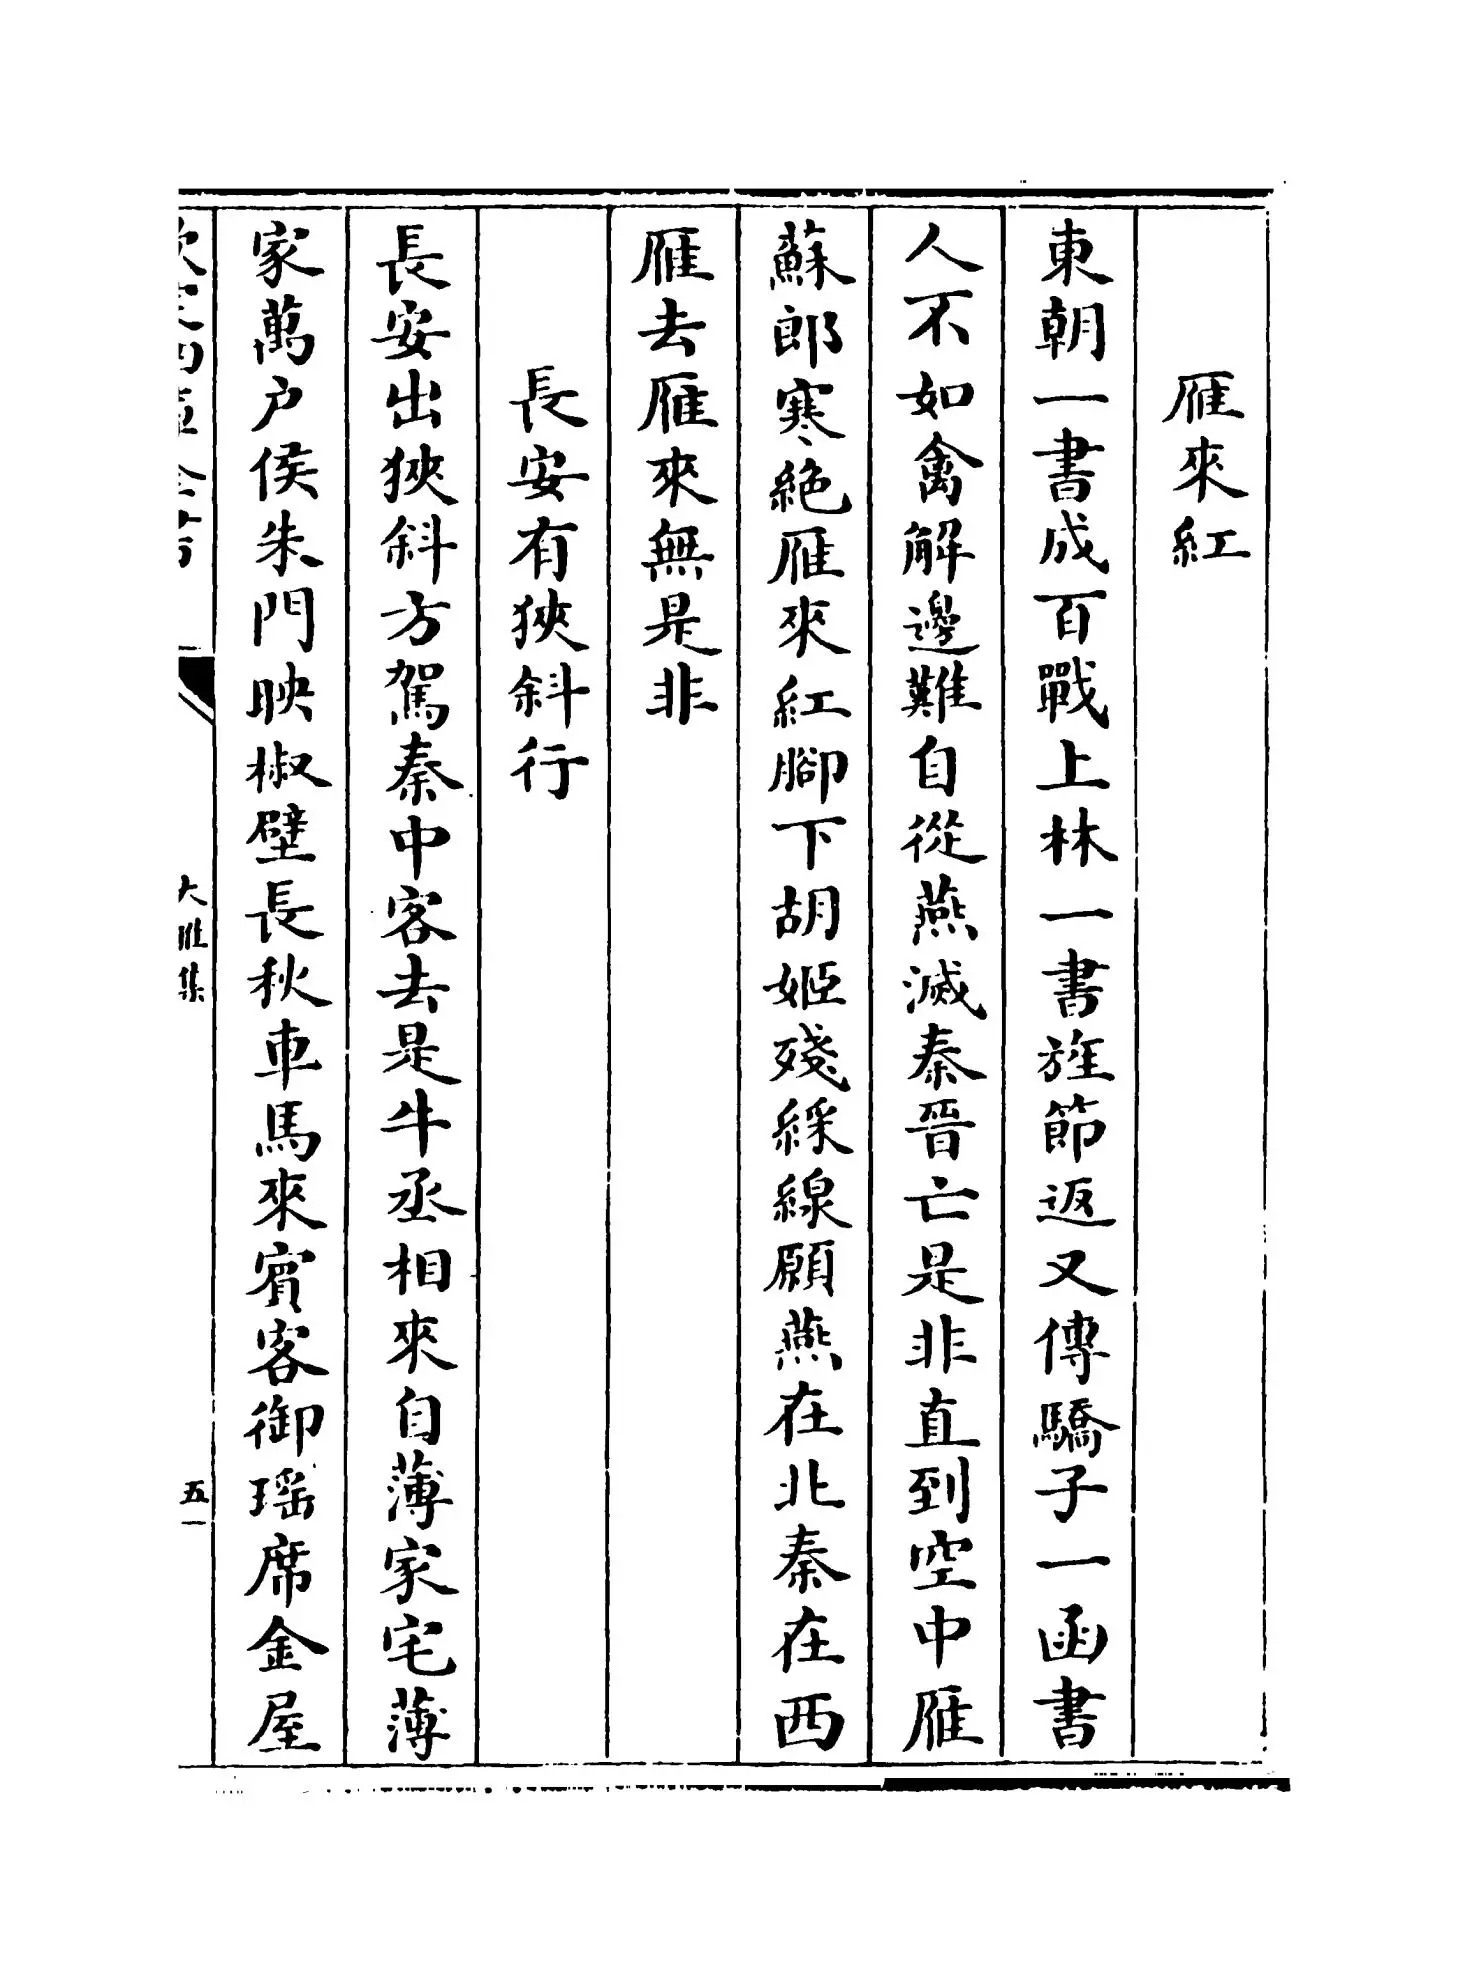 雁來紅
東朝一書成百戰上林一書旌節返又傳驕子一函書
人不如禽解邊難自從燕滅秦晉亡是非直到空中雁
蘇郎寒絶雁來紅腳下胡姬殘綵線願燕在北秦在西
雁去雁來無是非
長安有狹斜行
長安出狹斜方駕秦中客去是牛丞相來自薄家宅薄
家萬户侯朱門映椒壁長秋車馬來賓客御瑶席金屋
欽定四庫全書
大雅集
五一